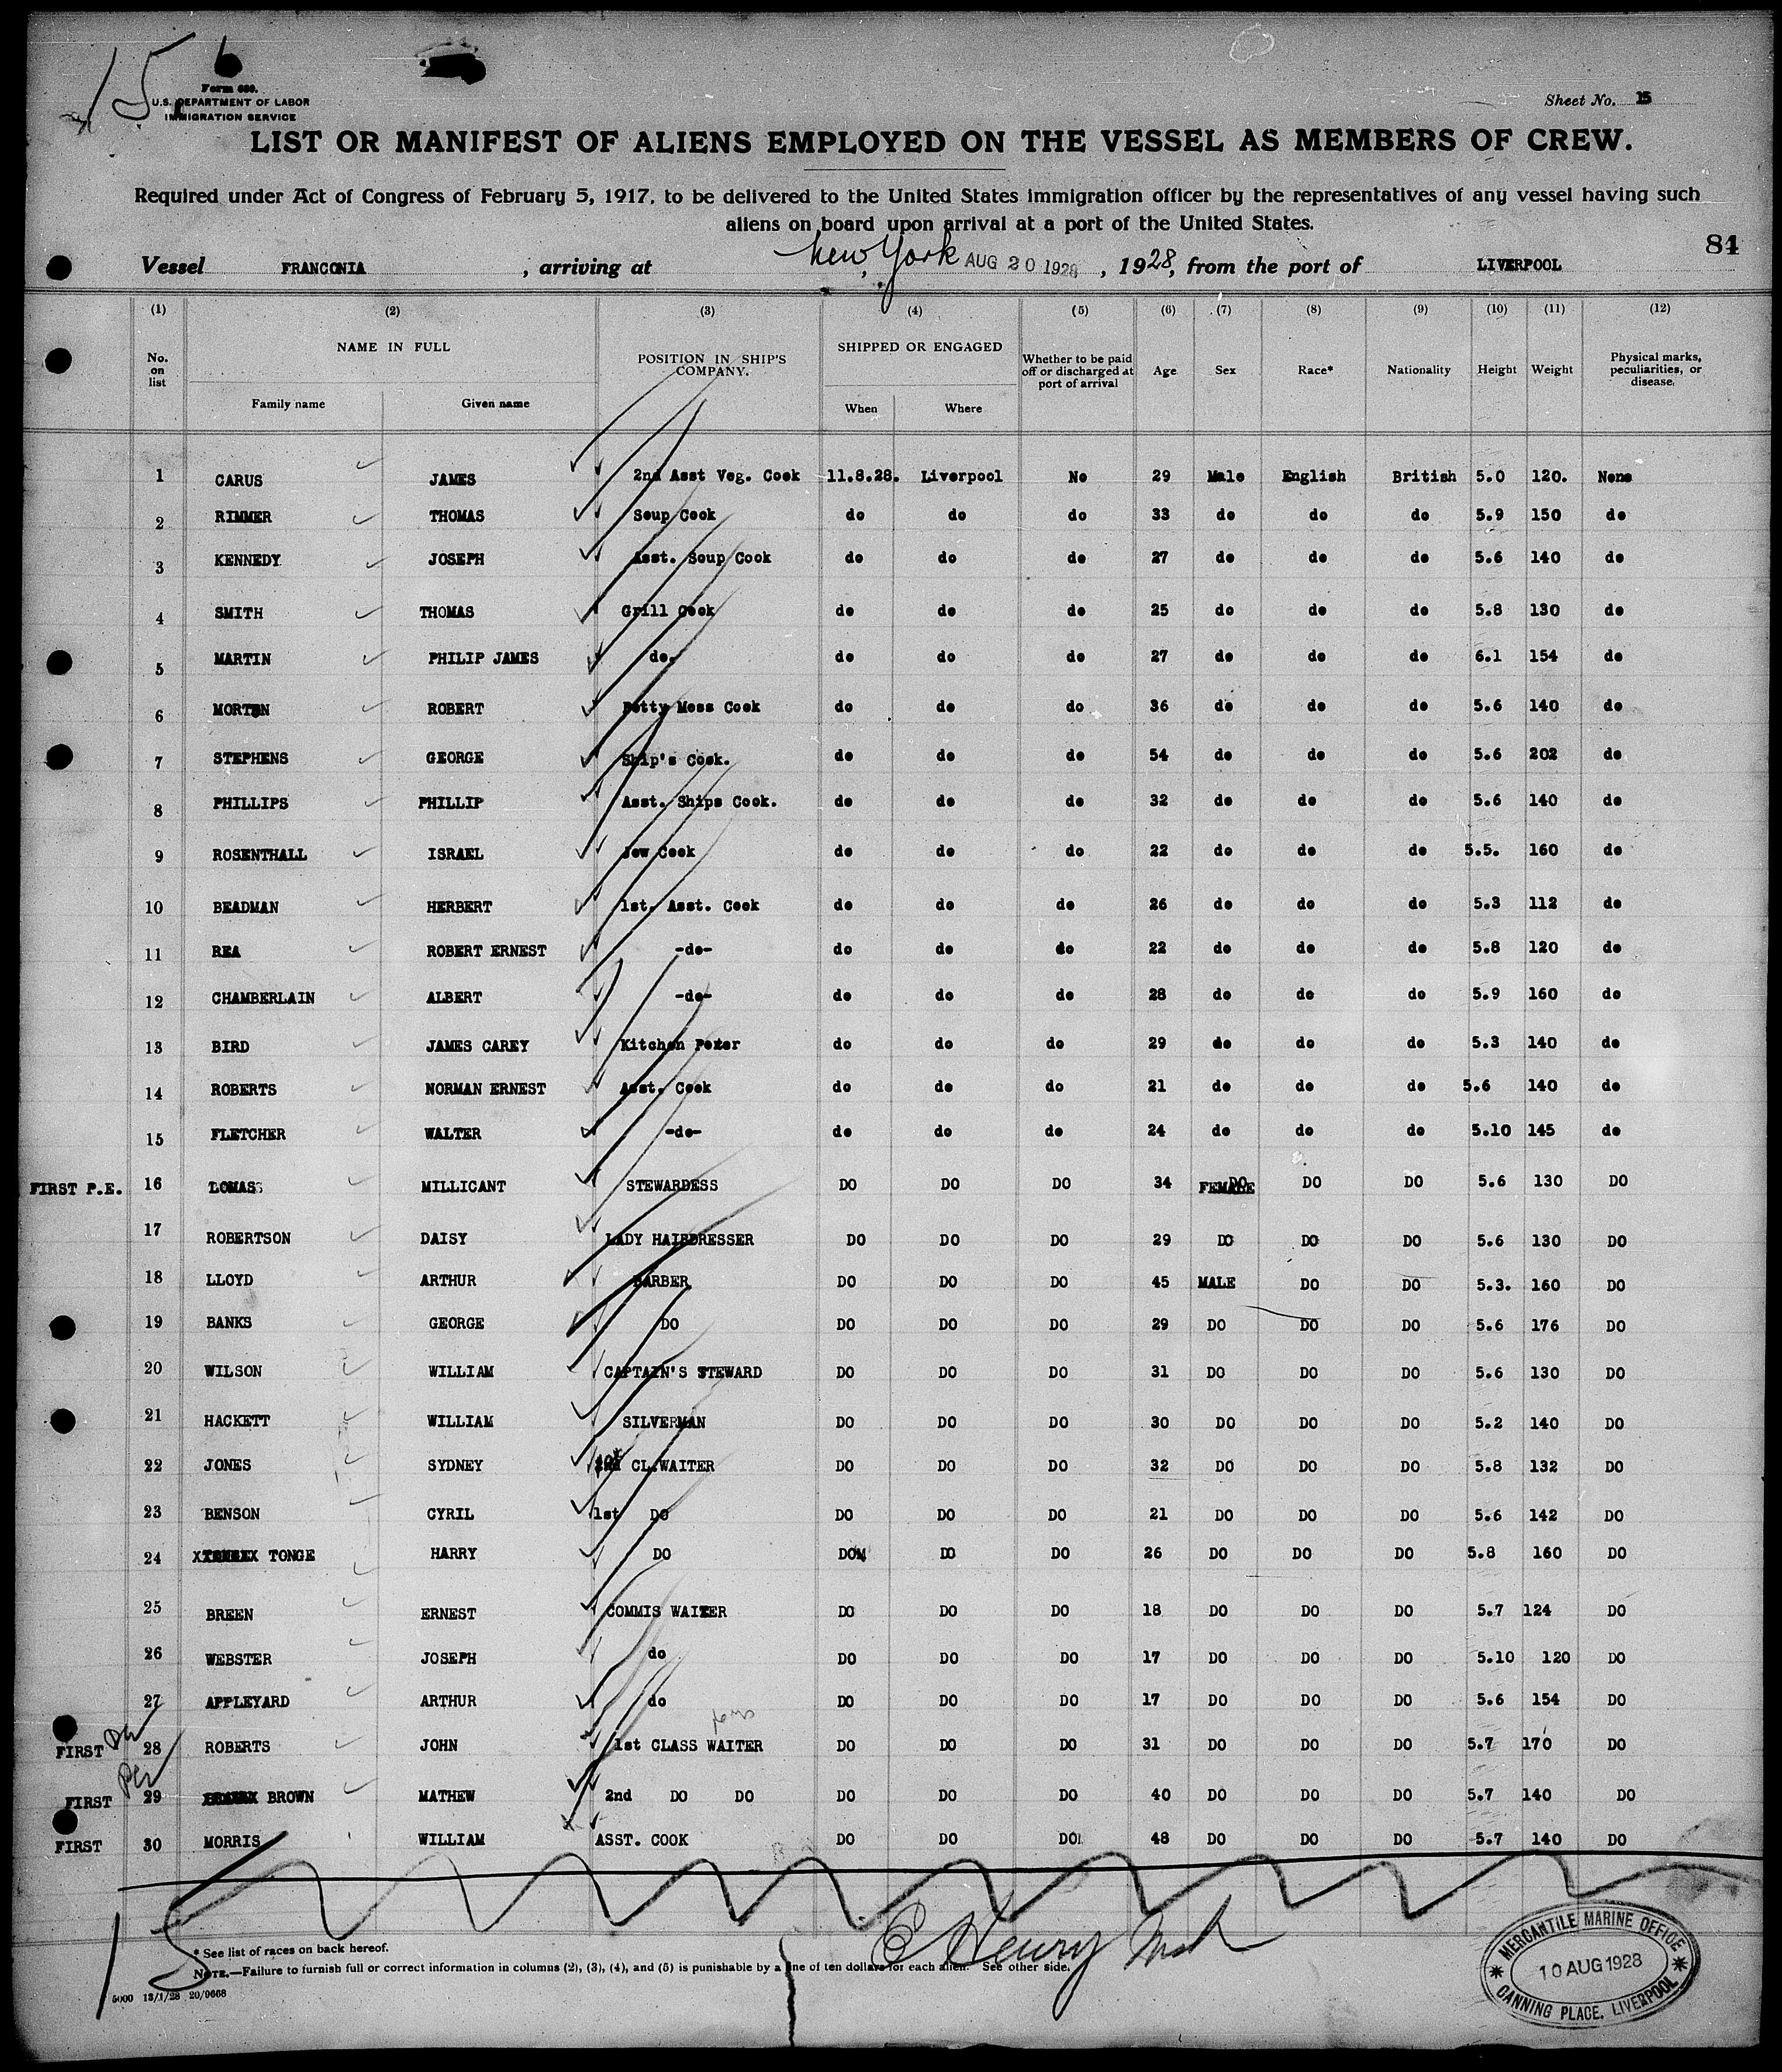 15 6
Form 680.
U.S. DEPARTMENT OF LABOR
IMMIGRATION SERVICE
Sheet No. 15
LIST OR MANIFEST OF ALIENS EMPLOYED ON THE VESSEL AS MEMBERS OF CREW.
Required under Act of Congress of February 5, 1917, to be delivered to the United States immigration officer by the representatives of any vessel having such
aliens on board upon arrival at a port of the United States.
84
Vessel FRANCONIA , arriving at New York AUG 20 1928 , 1928, from the port of LIVERPOOL
(1) (2) (3) (4) (5) (6) (7) (8) (9) (10) (11) (12)
No. on list NAME IN FULL POSITION IN SHIP'S COMPANY. SHIPPED OR ENGAGED Whether to be paid off or discharged at port of arrival Age Sex Race* Nationality Height Weight Physical marks, peculiarities, or disease.
Family name Given name When Where
1 CARUS JAMES 2nd Asst Veg. Cook 11.8.28. Liverpool No 29 Male English British 5.0 120. None
2 RIMMER THOMAS Soup Cook do do do 33 do do do 5.9 150 do
3 KENNEDY JOSEPH Asst. Soup Cook do do do 27 do do do 5.6 140 do
4 SMITH THOMAS Grill Cook do do do 25 do do do 5.8 130 do
5 MARTIN PHILIP JAMES do. do do do 27 do do do 6.1 154 do
6 MORTEN ROBERT Petty Mess Cook do do do 36 do do do 5.6 140 do
7 STEPHENS GEORGE Ship's Cook. do do do 54 do do do 5.6 202 do
8 PHILLIPS PHILLIP Asst. Ships Cook. do do do 32 do do do 5.6 140 do
9 ROSENTHALL ISRAEL Jew Cook do do do 22 do do do 5.5. 160 do
10 BEADMAN HERBERT 1st. Asst. Cook do do do 26 do do do 5.3 112 do
11 REA ROBERT ERNEST -do- do do do 22 do do do 5.8 120 do
12 CHAMBERLAIN ALBERT -do- do do do 28 do do do 5.9 160 do
13 BIRD JAMES CAREY Kitchen Poter do do do 29 do do do 5.3 140 do
14 ROBERTS NORMAN ERNEST Asst. Cook do do do 21 do do do 5.6 140 do
15 FLETCHER WALTER -do- do do do 24 do do do 5.10 145 do
FIRST P.E. 16 LOMAS MILLICANT STEWARDESS DO DO DO 34 FEMALE DO DO 5.6 130 DO
17 ROBERTSON DAISY LADY HAIRDRESSER DO DO DO 29 DO DO DO 5.6 130 DO
18 LLOYD ARTHUR BARBER DO DO DO 45 MALE DO DO 5.3. 160 DO
19 BANKS GEORGE DO DO DO DO 29 DO DO DO 5.6 176 DO
20 WILSON WILLIAM CAPTAIN'S STEWARD DO DO DO 31 DO DO DO 5.6 130 DO
21 HACKETT WILLIAM SILVERMAN DO DO DO 30 DO DO DO 5.2 140 DO
22 JONES SYDNEY CL.WAITER DO DO DO 32 DO DO DO 5.8 132 DO
23 BENSON CYRIL 1st DO DO DO DO 21 DO DO DO 5.6 142 DO
24 TONGE HARRY DO DO DO DO 26 DO DO DO 5.8 160 DO
25 BREEN ERNEST COMMIS WAITER DO DO DO 18 DO DO DO 5.7 124 DO
26 WEBSTER JOSEPH do DO DO DO 17 DO DO DO 5.10 120 DO
27 APPLEYARD ARTHUR do DO DO DO 17 DO DO DO 5.6 154 DO
FIRST 28 ROBERTS JOHN 1st CLASS WAITER DO DO DO 31 DO DO DO 5.7 170 DO
FIRST 29 BROWN MATHEW 2nd DO DO DO DO DO 40 DO DO DO 5.7 140 DO
FIRST 30 MORRIS WILLIAM ASST. COOK DO DO DO 48 DO DO DO 5.7 140 DO
15
E Henry
* See list of races on back hereof.
NOTE.—Failure to furnish full or correct information in columns (2), (3), (4), and (5) is punishable by a fine of ten dollars for each alien. See other side.
5000 13/1/28 20/9668
MERCANTILE MARINE OFFICE
10 AUG 1928
CANNING PLACE, LIVERPOOL